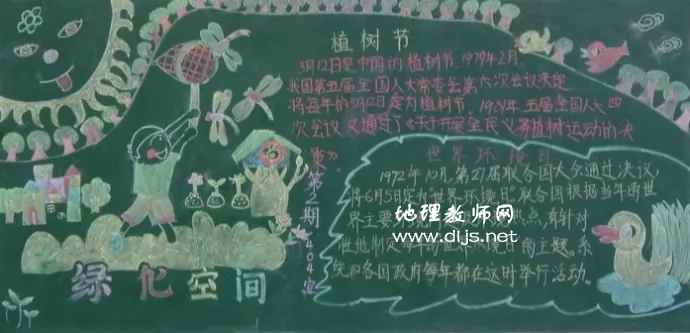 植树节
3月12日是中国的植树节,1979年2月
我国第五届全国人大常委会第六次会议决定
将每年的3月12日定为植树节。1981年,五届全国人大四
次会议又通过了《关于开展全民义务植树运动的决
议》。
世界环境日
1972年10月,第27届联合国大会通过决议,
将6月5日定为世界环境日 联合国根据当年的世
界主要 热点,有针对
性地制定 的主题。系
统和各国政府每年都在这时举行活动。
第2期
404宣
绿化空间
地理教师网
www.dljs.net